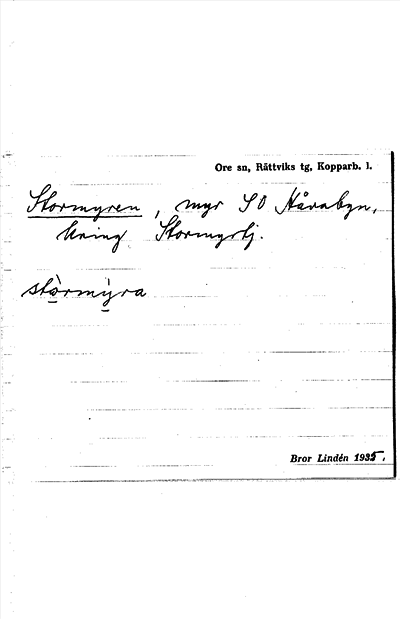 Ore sn, Rättviks tg, Kopparb. l.
Stormyren, myr SO Håvabyn,
kring Stormyrtj.
stòrmỳra
Bror Lindén 1935.